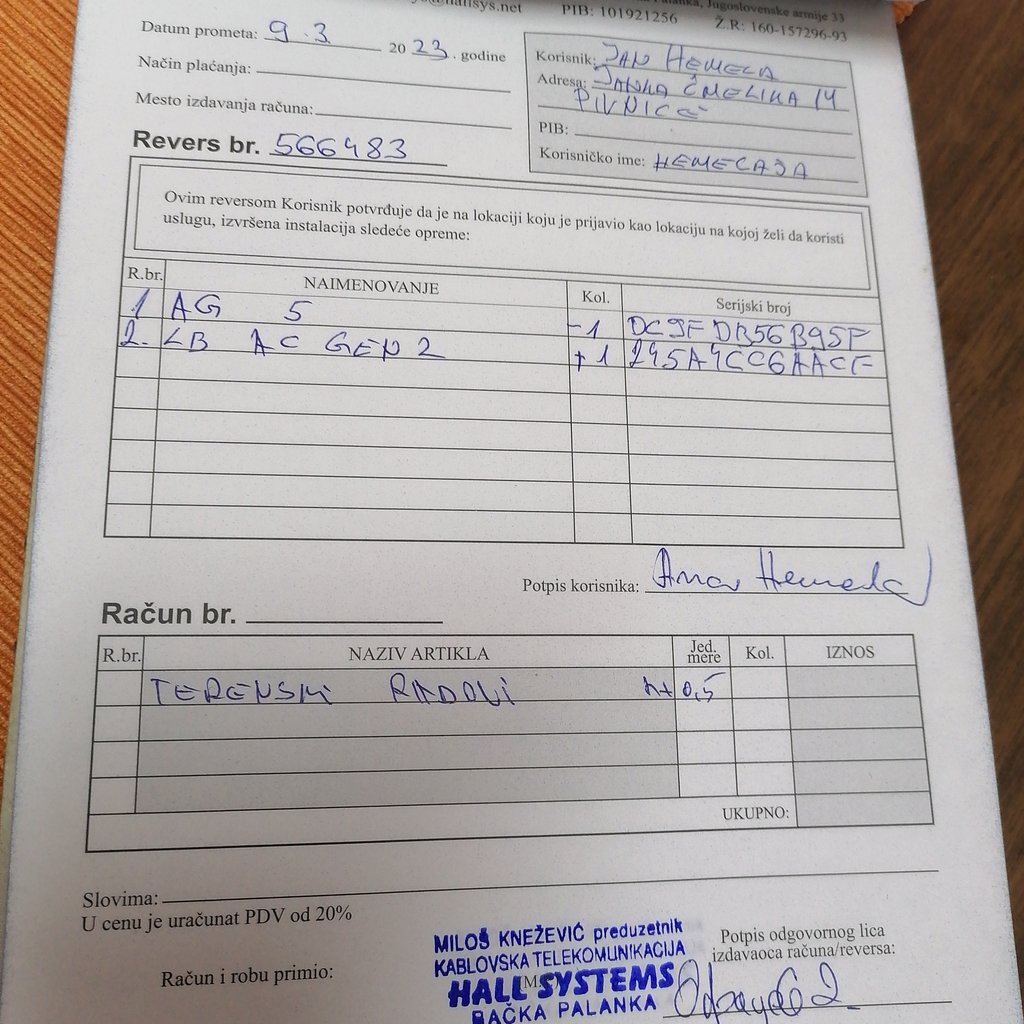 PIB: 101921256
Jugoslovenske armije 33
Ž.R: 160-157296-93
Datum prometa: 9.3 2023. godine
Način plaćanja:
Mesto izdavanja računa:
Revers br. 566483
Korisnik: JAN HEMELA
Adresa: JANKA ČMELIKA 14
PIVNICE
PIB:
Korisničko ime: HEMELAJA
Ovim reversom Korisnik potvrđuje da je na lokaciji koju je prijavio kao lokaciju na kojoj želi da koristi
uslugu, izvršena instalacija sledeće opreme:
R.br. NAIMENOVANJE Kol. Serijski broj
1 AG 5 -1 DC9FDB56B95F
2. LB AC GEN 2 +1 245A4CC6AACF
Potpis korisnika: Ana Hemela
Račun br.
R.br. NAZIV ARTIKLA Jed. mere Kol. IZNOS
TERENSKI RADOVI 0,5
UKUPNO:
Slovima:
U cenu je uračunat PDV od 20%
Račun i robu primio:
MILOŠ KNEŽEVIĆ preduzetnik
KABLOVSKA TELEKOMUNIKACIJA
HALL SYSTEMS
BAČKA PALANKA
Potpis odgovornog lica
izdavaoca računa/reversa: